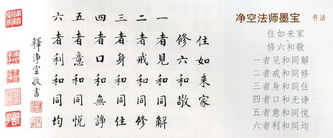 住如来家
修六和敬
一者見和同解
二者戒和同修
三者身和同住
四者口和無諍
五者意和同悅
六者利和同均
釋淨空敬書
净空法师墨宝 书法
住如来家
修六和敬
一者见和同解
二者戒和同修
三者身和同住
四者口和无诤
五者意和同悦
六者利和同均